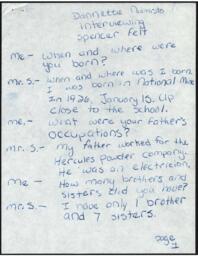 Dannette
interviewing
spencer felt
me - when and where were
you born?
Mr. S - when and where was I born
I was born in National Mine
In 1926, January 15. Up
close to the school.
me, - what were your father's
occupations?
Mr. S. - my father worked for the
Hercules powder company.
He was an electricion.
Me - How many brothers and
sisters did you have?
Mr. S. - I have only 1 brother
and 7 sisters.
page
1